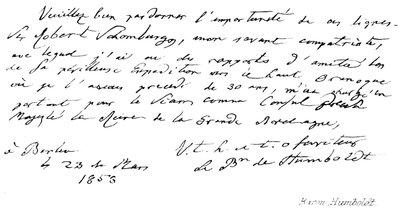 Veuillez bien pardonner l'importunité de ces lignes.
Sir Robert Schomburgk, mon savant compatriote,
avec lequel j'ai eu des rapports d'amitié lors
de sa périlleuse Expedition vers le haut Orenoque
où je l'avais précédé de 30 ans, m'a chargé en
partant pour le Siam comme Consul de Sa
Majesté la Reine de la Grande Bretagne,
à Berlin
le 23 Mars
1858
V. t. h. et t. o serviteur
Le Bn de Humboldt
Baron Humboldt.